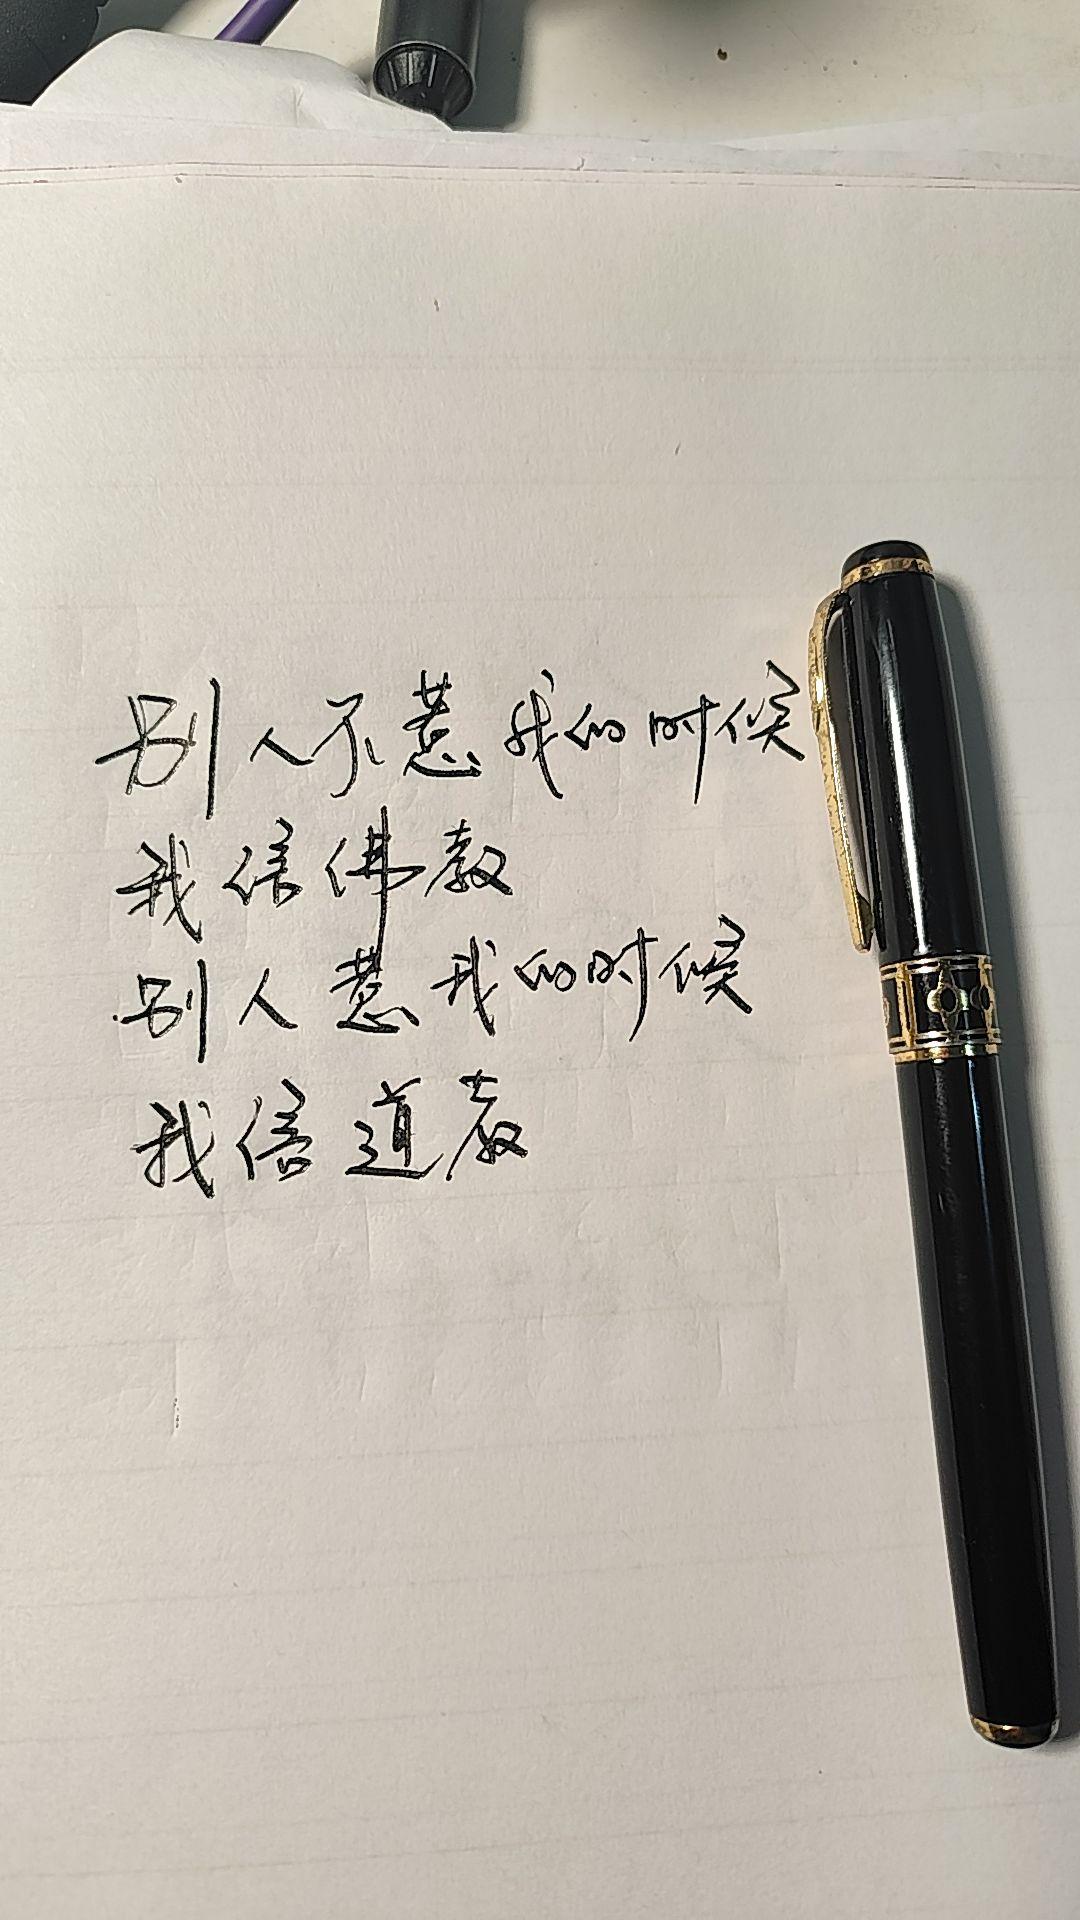 别人不惹我的时候
我信佛教
别人惹我的时候
我信道教